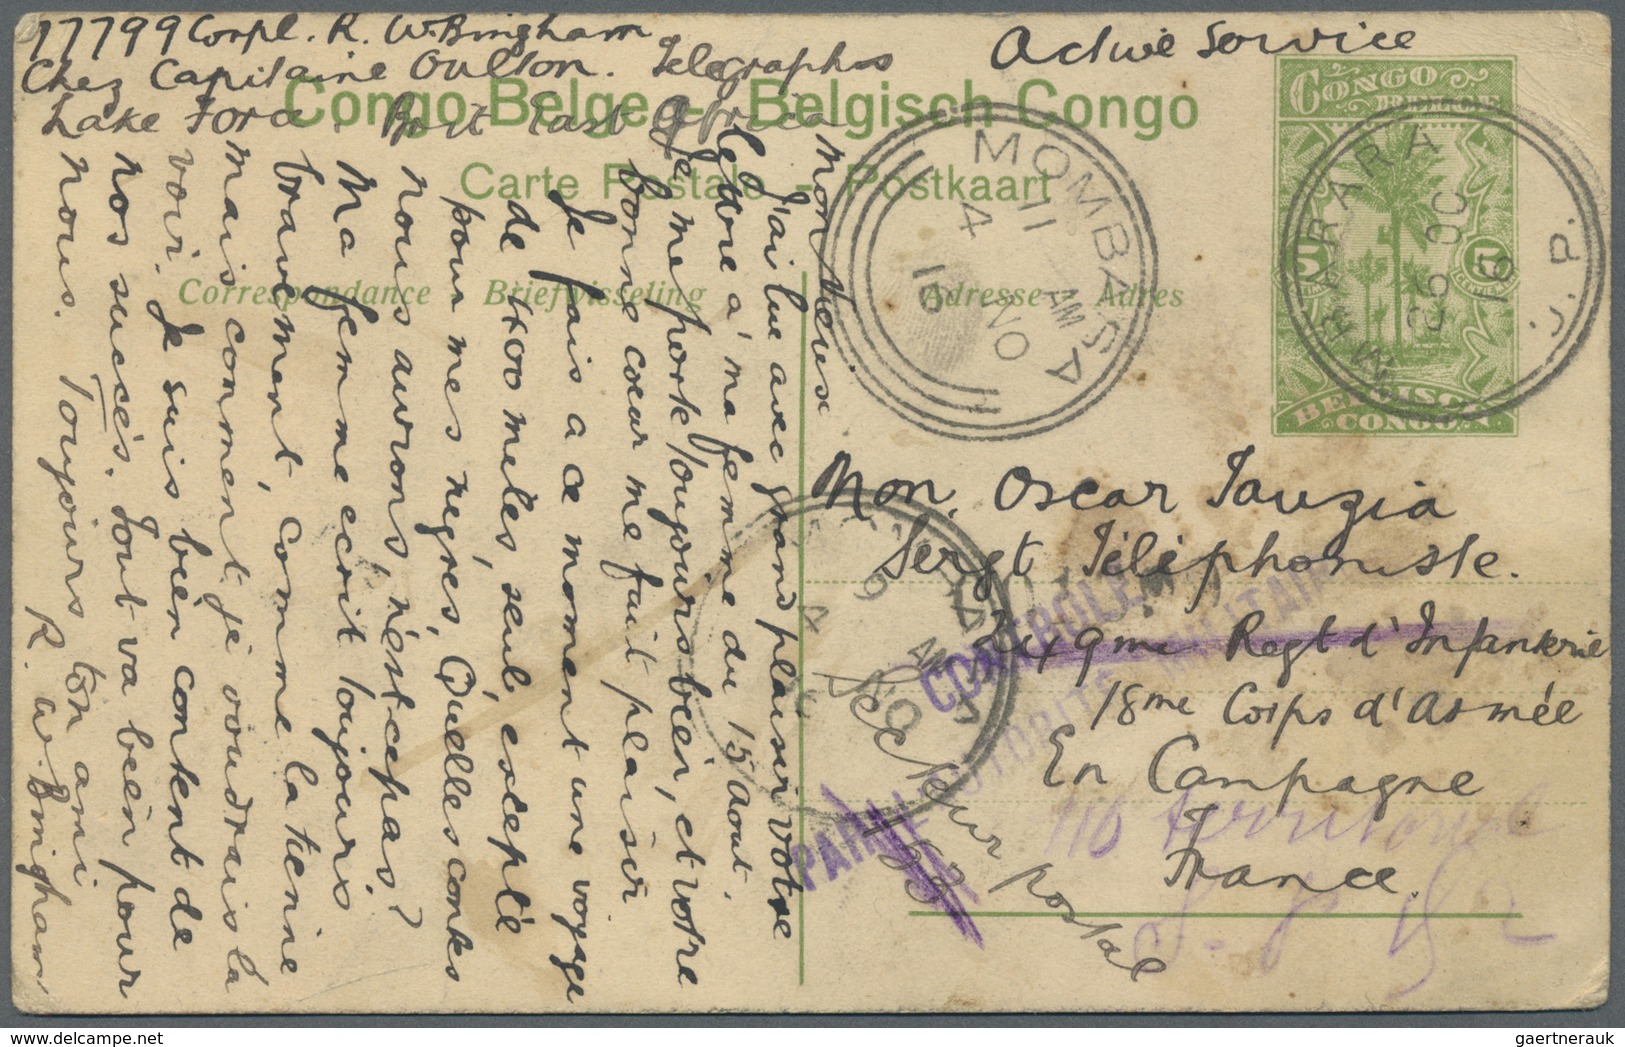 17799 Corpl. R. W. Bingham
Chez Capitaine Oulton. Telegraphs
Lake Force. Brit East Africa
Active Service
Congo Belge - Belgisch Congo
Carte Postale - Postkaart
Correspondance Briefwisseling
Adresse Adres
CONGO
BELGE
5 5
BELGISCH
CONGO
MBARARA
26 OC
16
U.P.
MOMBASA
11 AM
4 NO
16
MOMBASA
9 AM
4 NO
Mon Vieux
J'ai lue avec grand plaisir votre
lettre a' ma femme du 15 Aout.
Je me porte toujours bien, et votre
bonne coeur me fait plaisir
Je fais a ce moment une voyage
de 400 miles, seul, excepté
pour mes nègres, Quelles contes
nous aurons, n'est ce pas?
Ma femme ecrit toujours
bravement, comme la tienne
mais comment je voudrais la
voir. Je suis bien content de
nos succés. Tout va bien pour
nous. Toujours ton ami
R. W. Bingham
Mon. Oscar Tauzia
Sergt Téléphoniste.
249me Regt d'Infanterie
18me Corps d'Armée
En Campagne
France.
CONTROLE
PAR L'AUTORITÉ MILITAIRE
Secteur Postal
163
116 territorial
gaertnerauk